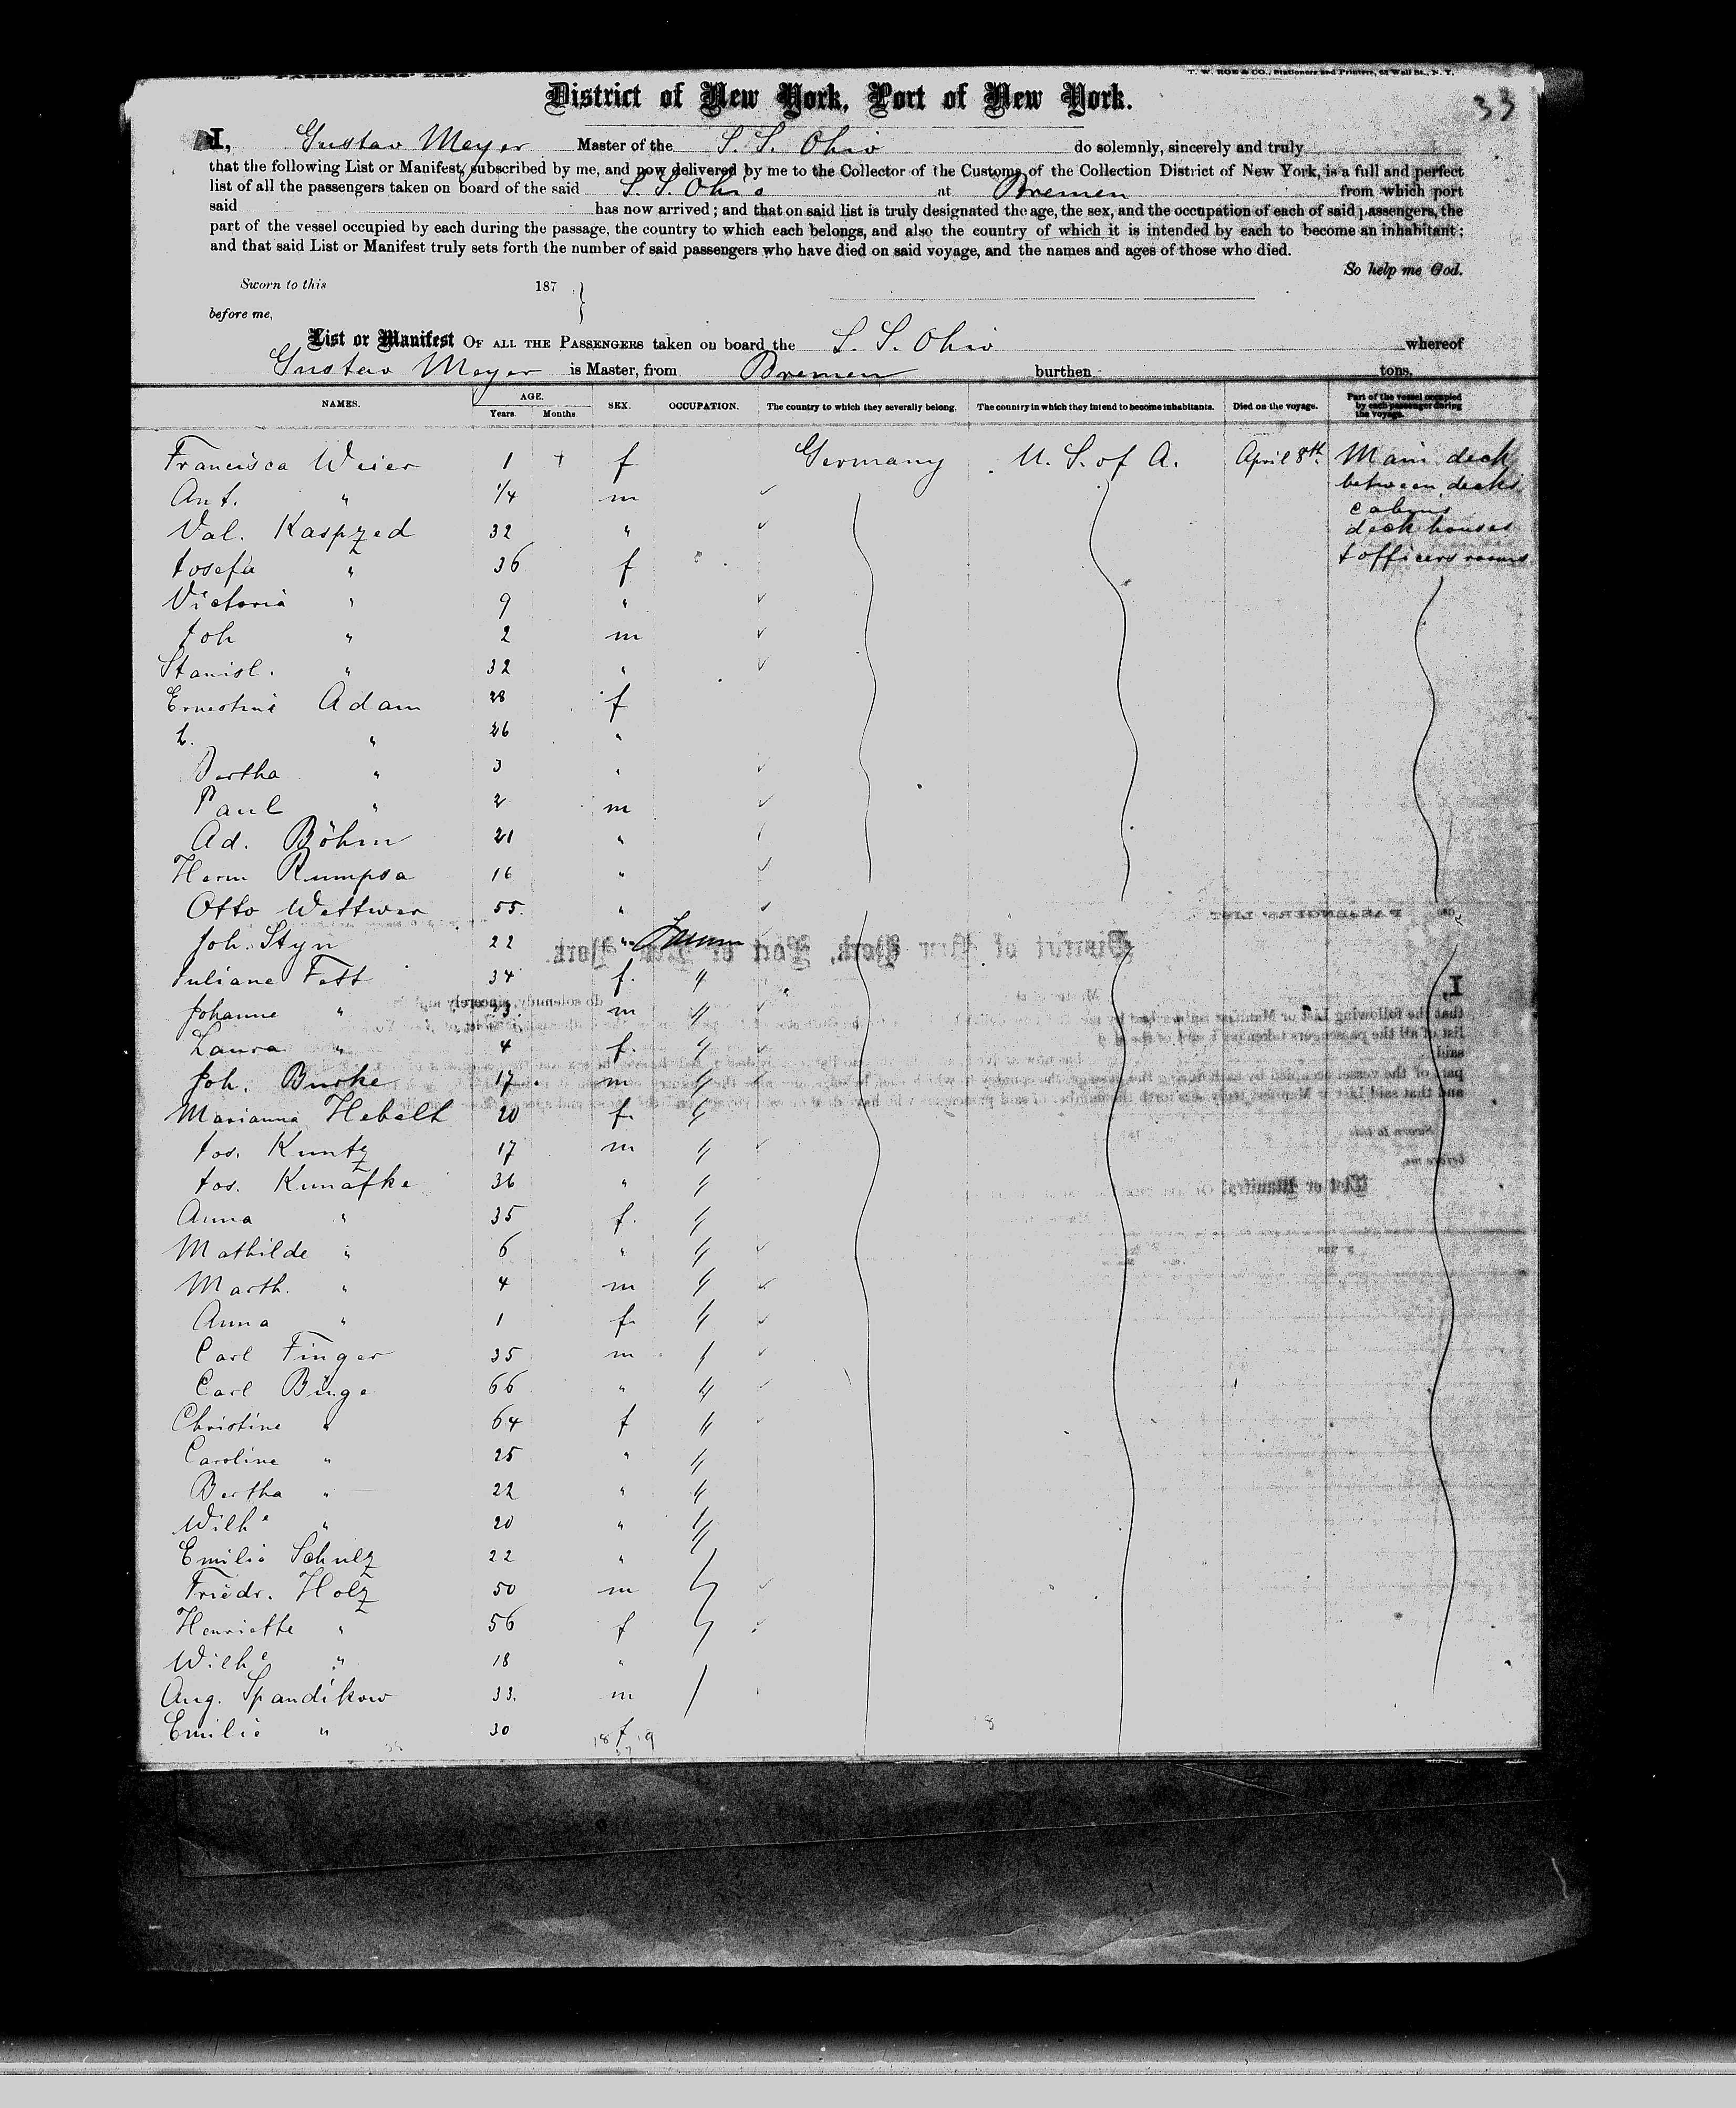 PASSENGERS' LIST.
T. W. ROE & CO., Stationers and Printers, 62 Wall St., N. Y.
33
District of New York, Port of New York.
I, Gustav Meyer Master of the S. S. Ohio do solemnly, sincerely and truly
that the following List or Manifest, subscribed by me, and now delivered by me to the Collector of the Customs of the Collection District of New York, is a full and perfect
list of all the passengers taken on board of the said S. S. Ohio at Bremen from which port
said has now arrived; and that on said list is truly designated the age, the sex, and the occupation of each of said passengers, the
part of the vessel occupied by each during the passage, the country to which each belongs, and also the country of which it is intended by each to become an inhabitant;
and that said List or Manifest truly sets forth the number of said passengers who have died on said voyage, and the names and ages of those who died.
So help me God.
Sworn to this 187
before me,
List or Manifest OF ALL THE PASSENGERS taken on board the S. S. Ohio whereof
Gustav Meyer is Master, from Bremen burthen tons.
NAMES. AGE. Years. Months. SEX. OCCUPATION. The country to which they severally belong. The country in which they intend to become inhabitants. Died on the voyage. Part of the vessel occupied by each passenger during the voyage.
Francisca Weier 1 + f Germany U. S. of A. April 8th. Main deck
Ant. " 1/4 m between decks
cabins
Val. Kaspzed 32 " deck houses
Josefa " 36 f + officers rooms
Victoria " 9 "
Joh " 2 m
Stanisl. " 32 "
Ernestine Adam 28 f
" 26 "
Bertha " 3 "
Paul " 2 m
Ad. Böhm 21 "
Herm Rumpsa 16 "
Otto Wettwer 55. "
Joh. Styn 22 "
Juliane Fett 34 f. "
Johanne " m "
Laura " 4 f. "
Joh. Burke 17 m "
Marianna Hebelt 20 f. "
Jos. Kuntz 17 m "
Jos. Kunafke 36 " "
Anna " 35 f. "
Mathilde " 6 " "
Marth. " 4 m "
Anna " 1 f. "
Carl Finger 35 m
Carl Büge 66 " "
Christine " 64 f "
Caroline " 25 " "
Bertha " 22 " "
Wilhe " 20 " "
Emilie Schulz 22 " "
Friedr. Holz 50 m
Henriette " 56 f
Wilhe " 18 "
Aug. Spandikow 33. m
Emilie " 30 f